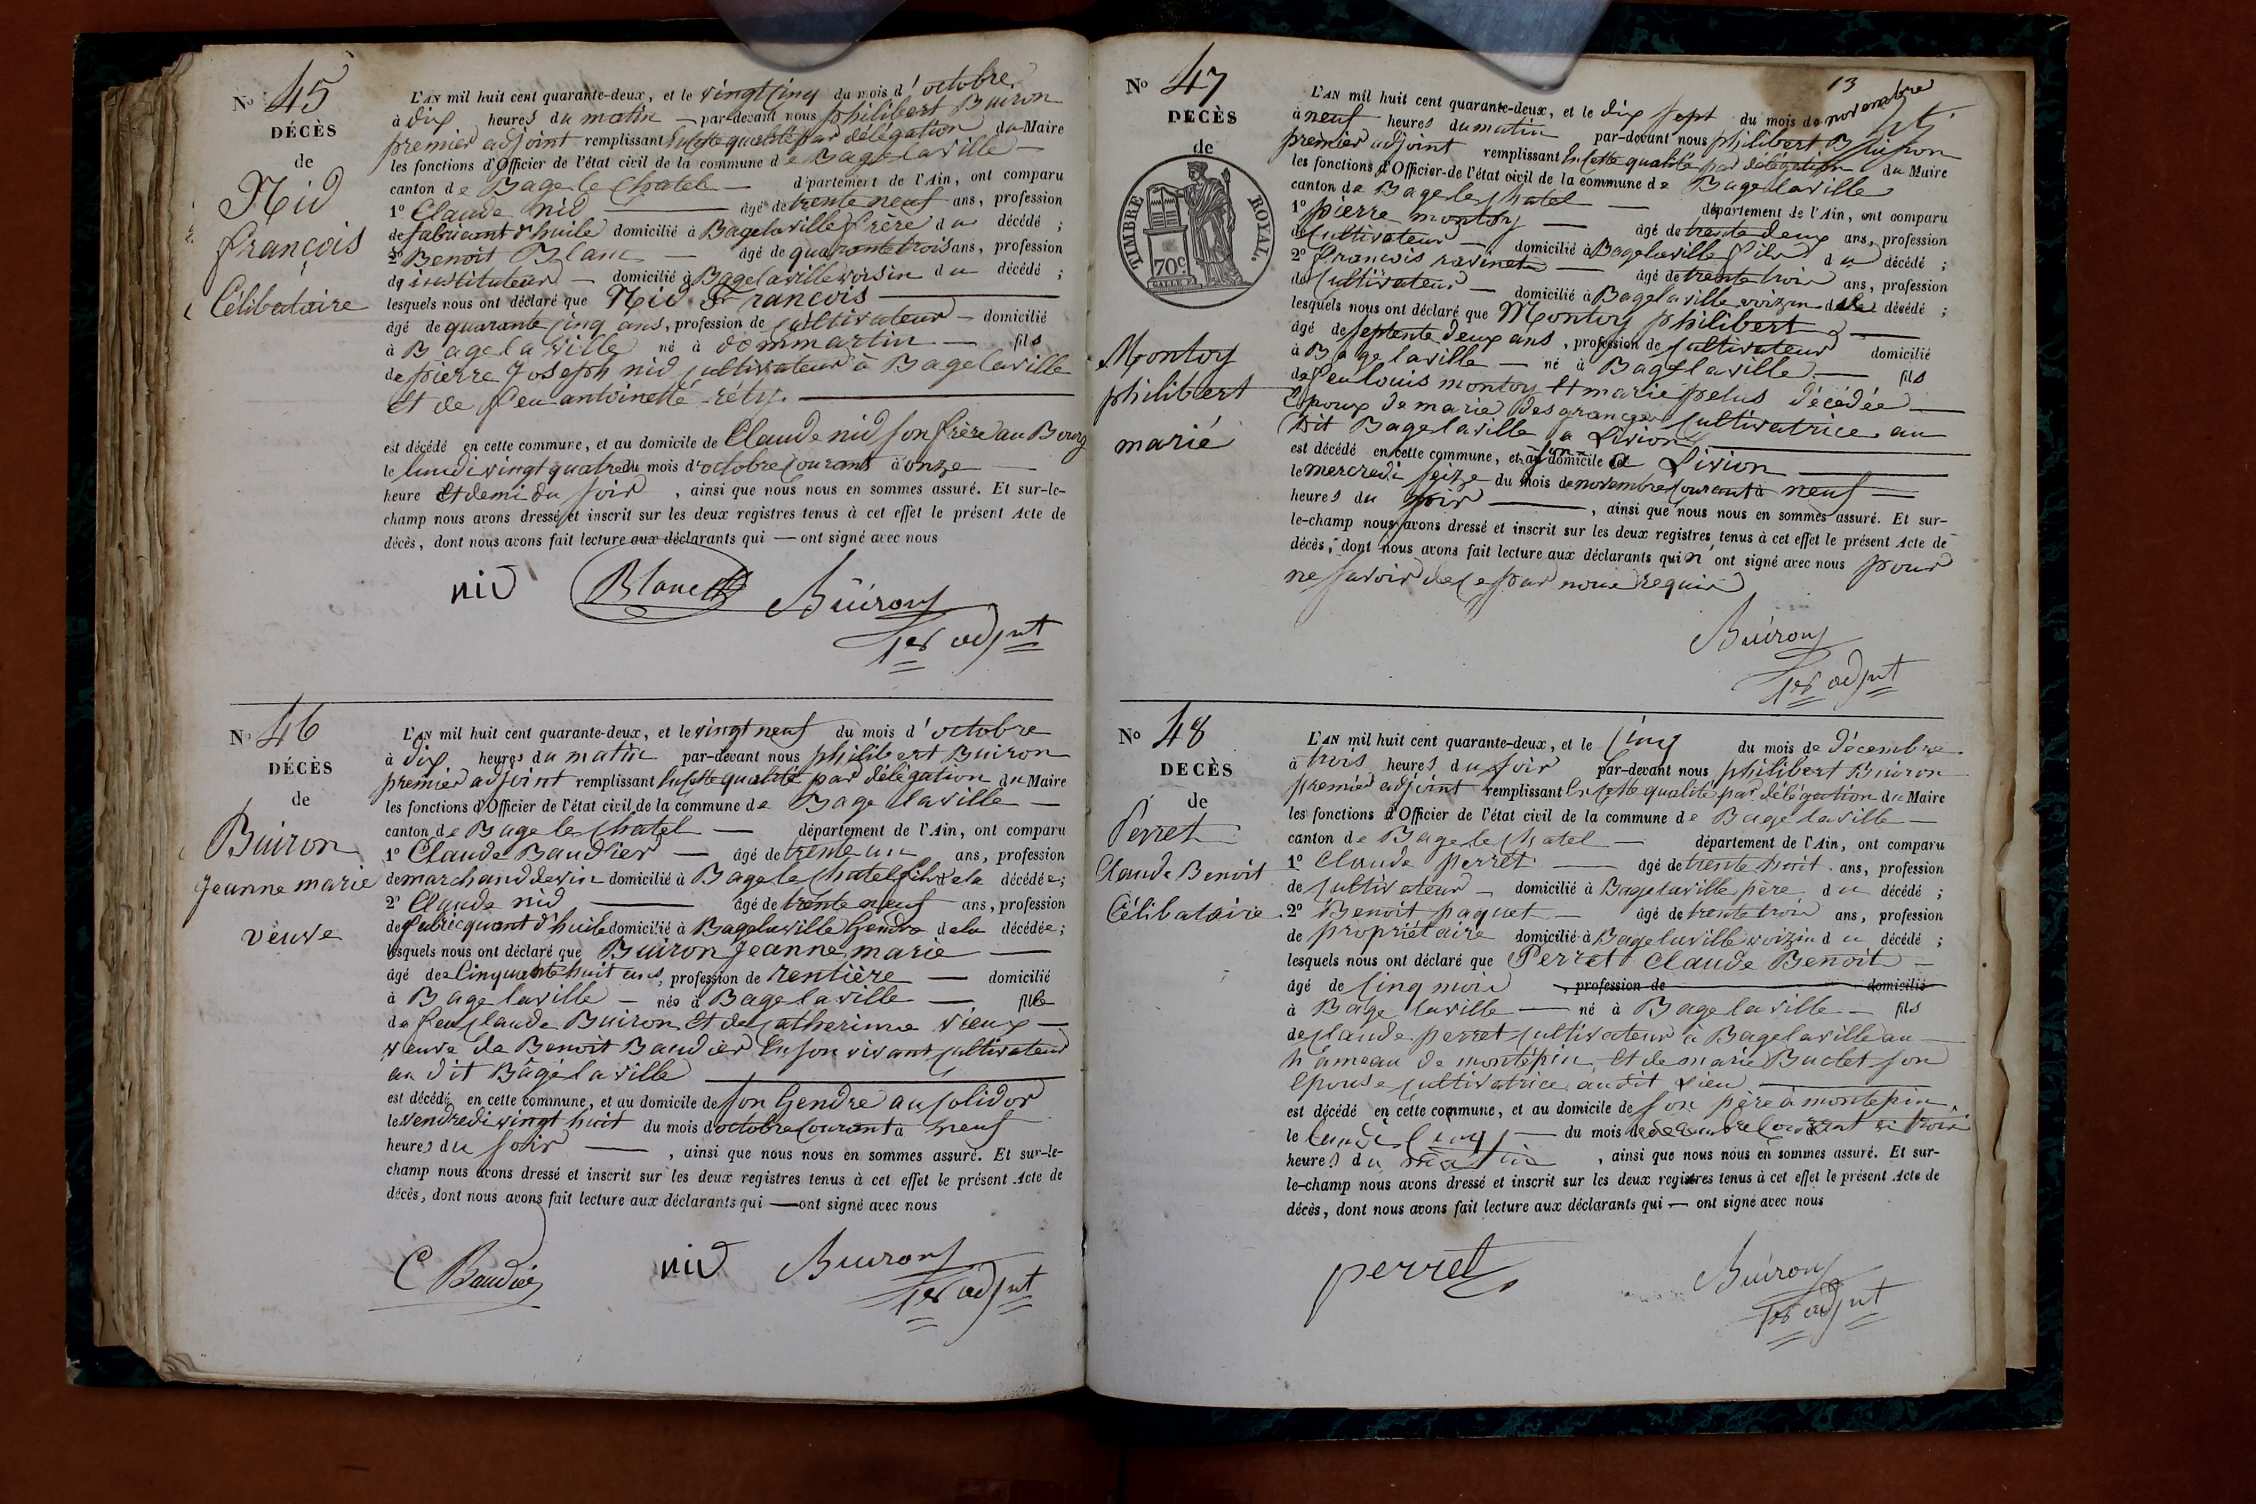 No 45
DÉCÈS
de
Nid
françois
Célibataire
L'AN mil huit cent quarante-deux, et le vingt cinq du mois d'octobre
à dix heures du matin — par-devant nous philibert Buiron
premier adjoint remplissant en cette qualité par délégation du Maire
les fonctions d'Officier de l'état civil de la commune de Bagé la ville —
canton de Bage le Chatel — département de l'Ain, ont comparu
1o Claude nid — âgé de trente neuf ans, profession
de fabricant d'huile domicilié à Bage la ville frère du décédé ;
2o Benoit Blanc — âgé de quarante trois ans, profession
de instituteur — domicilié à Bage la ville voisin du décédé ;
lesquels nous ont déclaré que Nid François —
âgé de quarante cinq ans, profession de cultivateur — domicilié
à Bage la ville né à dommartin — fils
de pierre Joseph nid cultivateur à Bage la ville
Et de feu antoinette réty. —
est décédé en cette commune, et au domicile de Claude nid son frère au Bourg
le lundi vingt quatre du mois d'octobre Courant à onze —
heure et demi du soir , ainsi que nous nous en sommes assuré. Et sur-le-
champ nous avons dressé et inscrit sur les deux registres tenus à cet effet le présent Acte de
décès, dont nous avons fait lecture aux déclarants qui — ont signé avec nous
nid Blanc Buiron
1er adjnt
No 46
DÉCÈS
de
Buiron
Jeanne marie
veuve
L'AN mil huit cent quarante-deux, et le vingt neuf du mois d'octobre
à dix heures du matin par-devant nous philibert Buiron
premier adjoint remplissant en cette qualité par délégation du Maire
les fonctions d'Officier de l'état civil de la commune de Bage la ville —
canton de Bage le Chatel — département de l'Ain, ont comparu
1o Claude Baudier — âgé de trente un ans, profession
de marchand de vin domicilié à Bage le Chatel fils de la décédée ;
2o Claude nid — âgé de trente neuf ans, profession
de fabricquant d'huile domicilié à Bage la ville Gendre de la décédée ;
lesquels nous ont déclaré que Buiron Jeanne marie —
âgé de Cinquante huit ans, profession de rentière — domicilié
à Bage la ville — née à Bage la ville — fille
de feu Claude Buiron Et de Catherinne vieux —
veuve de Benoit Baudier En son vivant cultivateur
au dit Bagé la ville —
est décédé en cette commune, et au domicile de son Gendre au solidor
le vendredi vingt huit du mois d'octobre Courant à neuf
heures du soir — , ainsi que nous nous en sommes assuré. Et sur-le-
champ nous avons dressé et inscrit sur les deux registres tenus à cet effet le présent Acte de
décès, dont nous avons fait lecture aux déclarants qui — ont signé avec nous
C Baudier nid Buiron
1er adjnt
13
No 47
DECÈS
de
TIMBRE ROYAL
70c
Montoy
philibert
marié
L'AN mil huit cent quarante-deux, et le dix sept du mois de novembre
à neuf heures du matin par-devant nous philibert Buiron
premier adjoint remplissant En cette qualité par délégation du Maire
les fonctions d'Officier de l'état civil de la commune de Bage la ville
canton de Bage le Chatel — département de l'Ain, ont comparu
1o pierre montoy — âgé de trente deux ans, profession
de Cultivateur — domicilié à Bage la ville fils du décédé ;
2o francois ravinet — âgé de trente trois ans, profession
de Cultivateur — domicilié à Bage la ville voizin du décédé ;
lesquels nous ont déclaré que Montoy philibert —
âgé de septente deux ans, profession de cultivateur domicilié
à Bage la ville — né à Bage la ville — fils
de feu louis montoy Et marie pelus décédée —
Epoux de marie Desgranges Cultivatrice au
dit Bage la ville a Livion —
est décédé en cette commune, et au domicile a Livion —
le mercredi seize du mois de novembre Courant à neuf —
heures du soir — , ainsi que nous nous en sommes assuré. Et sur-
le-champ nous avons dressé et inscrit sur les deux registres tenus à cet effet le présent Acte de
décès, dont nous avons fait lecture aux déclarants qui n'ont signé avec nous pour
ne savoir de ce par nous requis
Buiron
1er adjnt
No 48
DECÈS
de
Perret
Claude Benoit
Célibataire
L'AN mil huit cent quarante-deux, et le Cinq du mois de Décembre
à trois heures du soir par-devant nous philibert Buiron
premier adjoint remplissant En cette qualité par délégation du Maire
les fonctions d'Officier de l'état civil de la commune de Bage la ville —
canton de Bage le Chatel — département de l'Ain, ont comparu
1o Claude perret — âgé de trente huit ans, profession
de cultivateur — domicilié à Bage la ville père du décédé ;
2o Benoit paquet — âgé de trente trois ans, profession
de propriétaire domicilié à Bage la ville voizin du décédé ;
lesquels nous ont déclaré que Perret Claude Benoit —
âgé de Cinq mois , profession de domicilié
à Bage la ville — né à Bage la ville — fils
de Claude perret Cultivateur à Bage la ville au —
hameau de montépin Et de marie Buclet son
Epouse cultivatrice au dit Lieu —
est décédé en cette commune, et au domicile de son père à montepin
le lundi Cinq — du mois de décembre Courant à trois
heures du matin , ainsi que nous nous en sommes assuré. Et sur-
le-champ nous avons dressé et inscrit sur les deux registres tenus à cet effet le présent Acte de
décès, dont nous avons fait lecture aux déclarants qui — ont signé avec nous
perret Buiron
1er adjnt